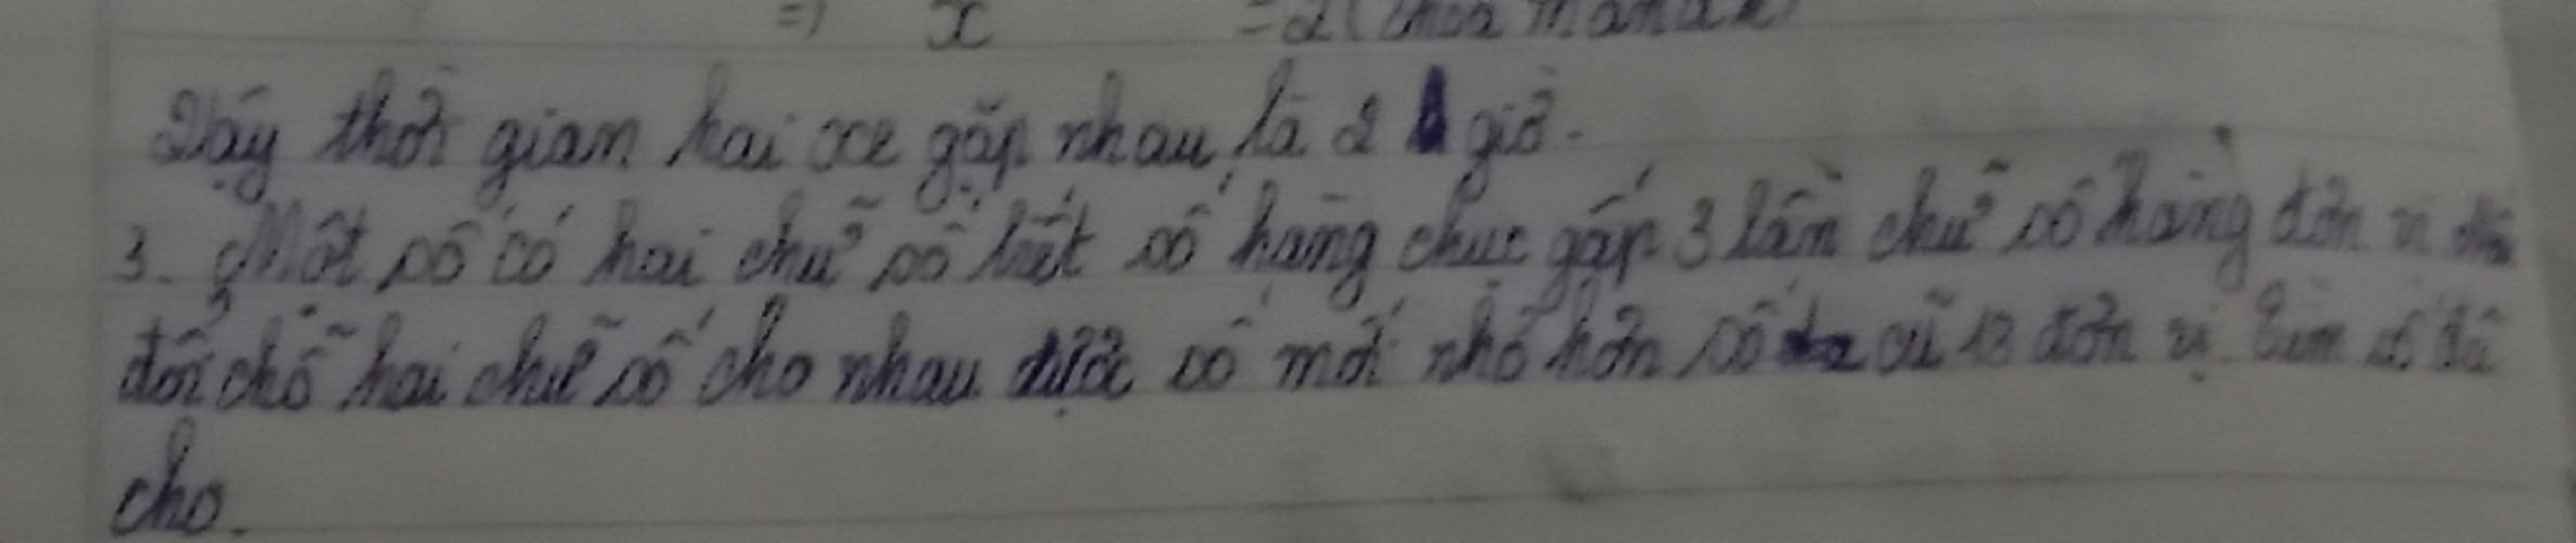 => x =2 (thỏa mãn đk)
Vậy thời gian hai xe gặp nhau là 2 giờ.
3. Một số có hai chữ số biết số hàng chục gấp 3 lần chữ số hàng đơn vị
đổi chỗ hai chữ số cho nhau được số mới nhỏ hơn số cũ 18 đơn vị. Tìm số đã
cho.